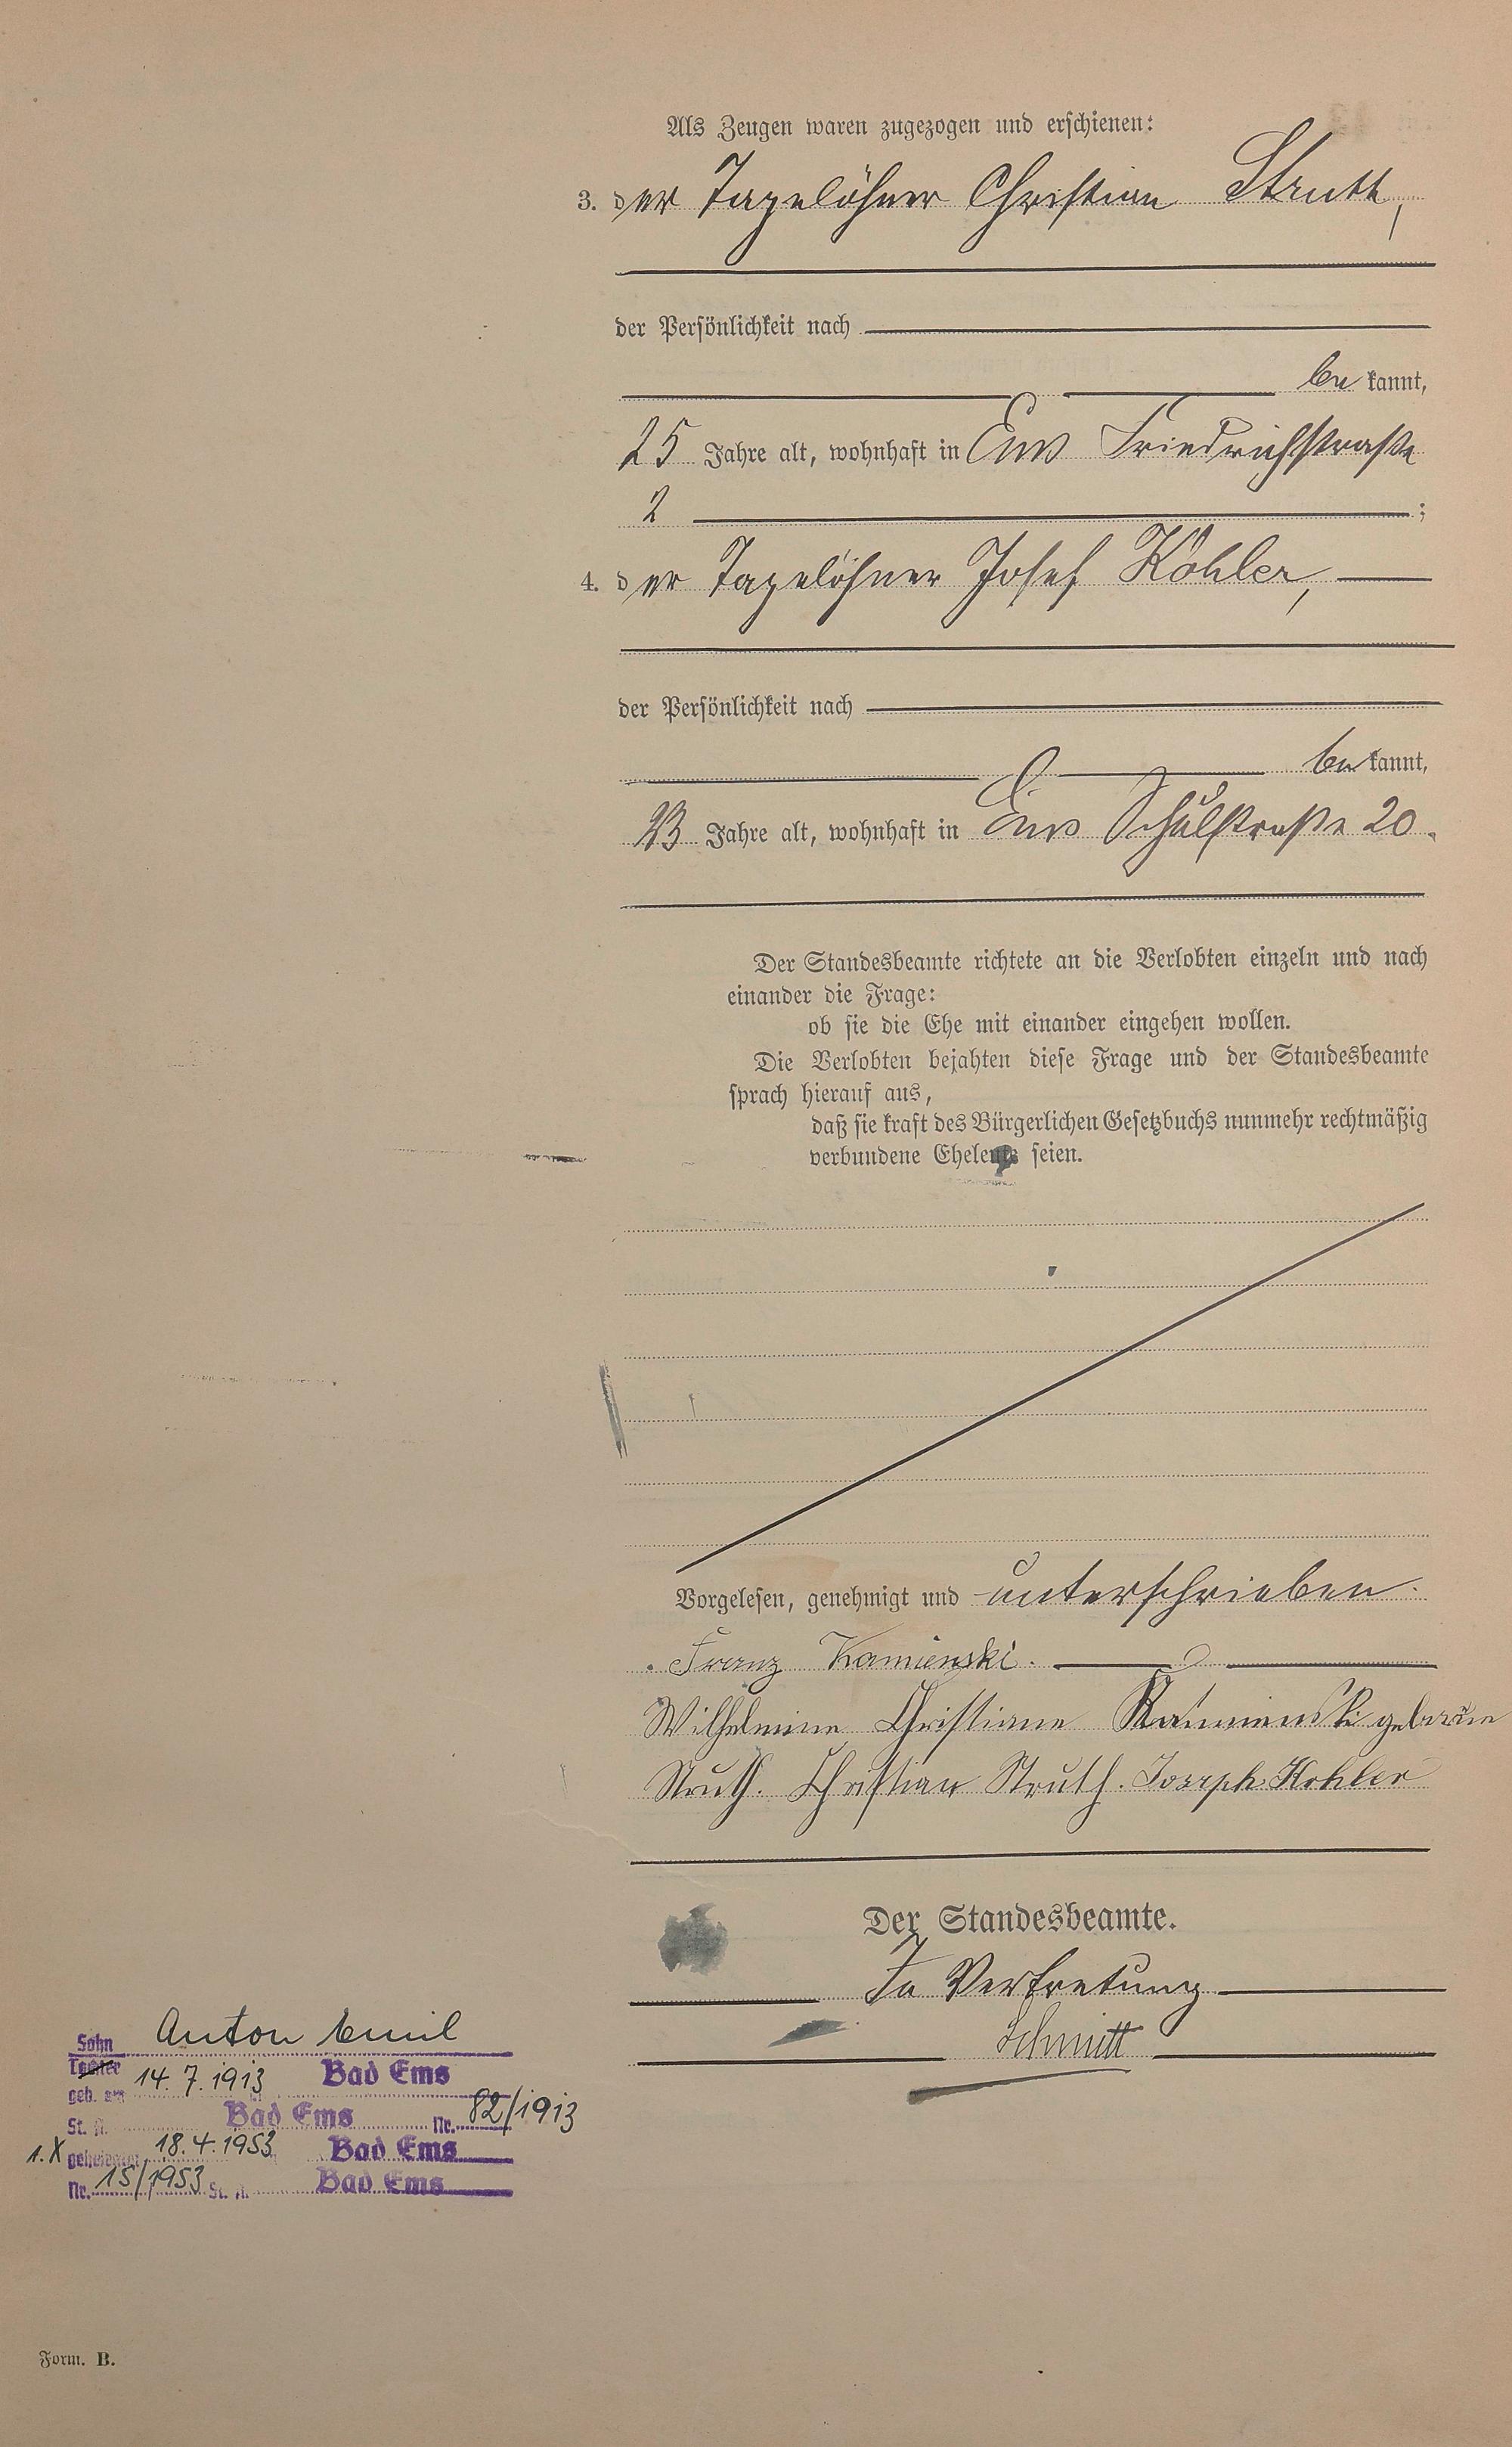 Als Zeugen waren zugezogen und erschienen:
3. der Tagelöhner Christian Struth,
der Persönlichkeit nach
be kannt,
25 Jahre alt, wohnhaft in Ems Friedrichstraße
2 ;
4. der Tagelöhner Josef Köhler,
der Persönlichkeit nach
be kannt,
23 Jahre alt, wohnhaft in Ems Schulstraße 20.
Der Standesbeamte richtete an die Verlobten einzeln und nach
einander die Frage:
ob sie die Ehe mit einander eingehen wollen.
Die Verlobten bejahten diese Frage und der Standesbeamte
sprach hierauf aus,
daß sie kraft des Bürgerlichen Gesetzbuchs nunmehr rechtmäßig
verbundene Eheleute seien.
Vorgelesen, genehmigt und unterschrieben.
Franz Kamienski.
Wilhelmine Christiane Kamienski geborene
Struth. Christian Struth. Joseph Kohler
Der Standesbeamte.
In Vertretung
Schmitt
Sohn Anton Emil
Tochter
geb. am 14.7.1913 Bad Ems
St. A. Bad Ems Nr. 82/1913
1.X geheiratet 18.4.1953 Bad Ems
Nr. 15/1953 St. A. Bad Ems
Form. B.